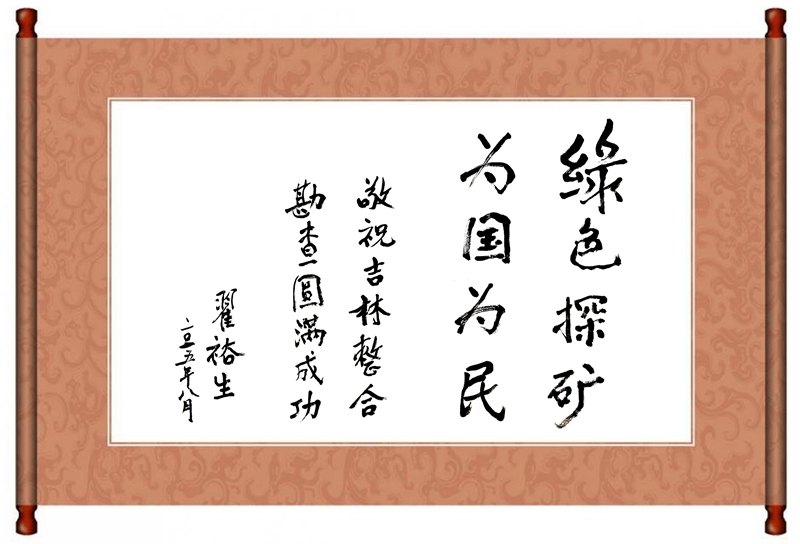 綠色探矿
为国为民
敬祝吉林整合
勘查圆满成功
翟裕生
二〇一五年八月